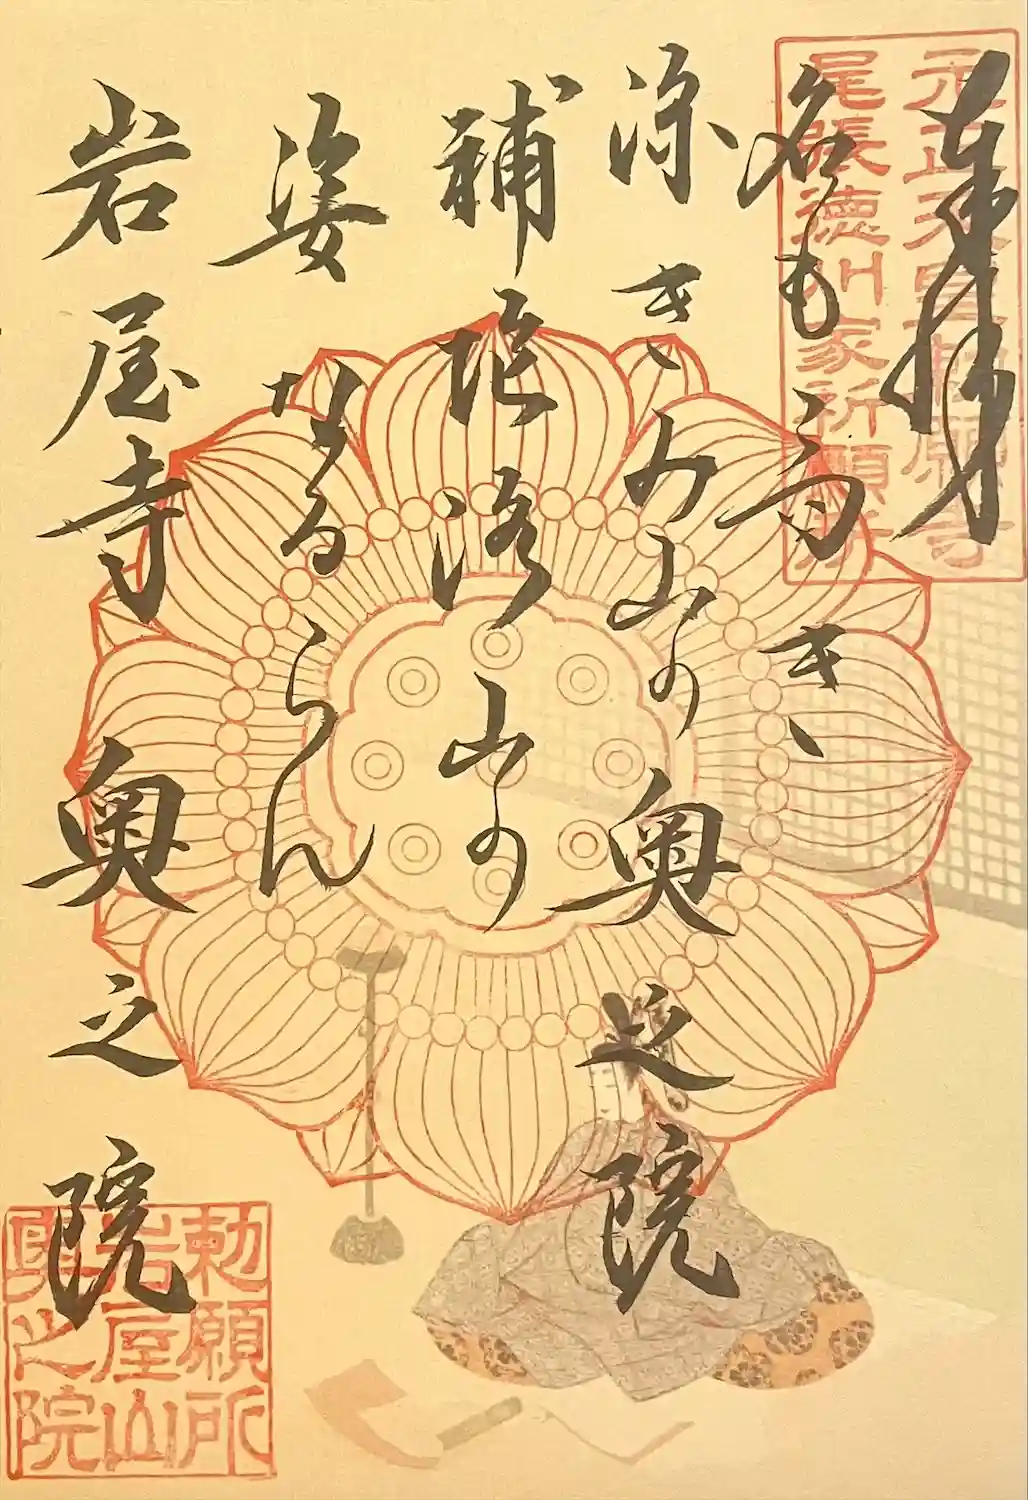 奉拝
元正天皇勅願寺
尾張徳川家祈願所
名も高き、
深きみ山の奥之院
補陀洛山の
姿なるらん
岩屋寺奥之院
勅願所
岩屋山
奥之院